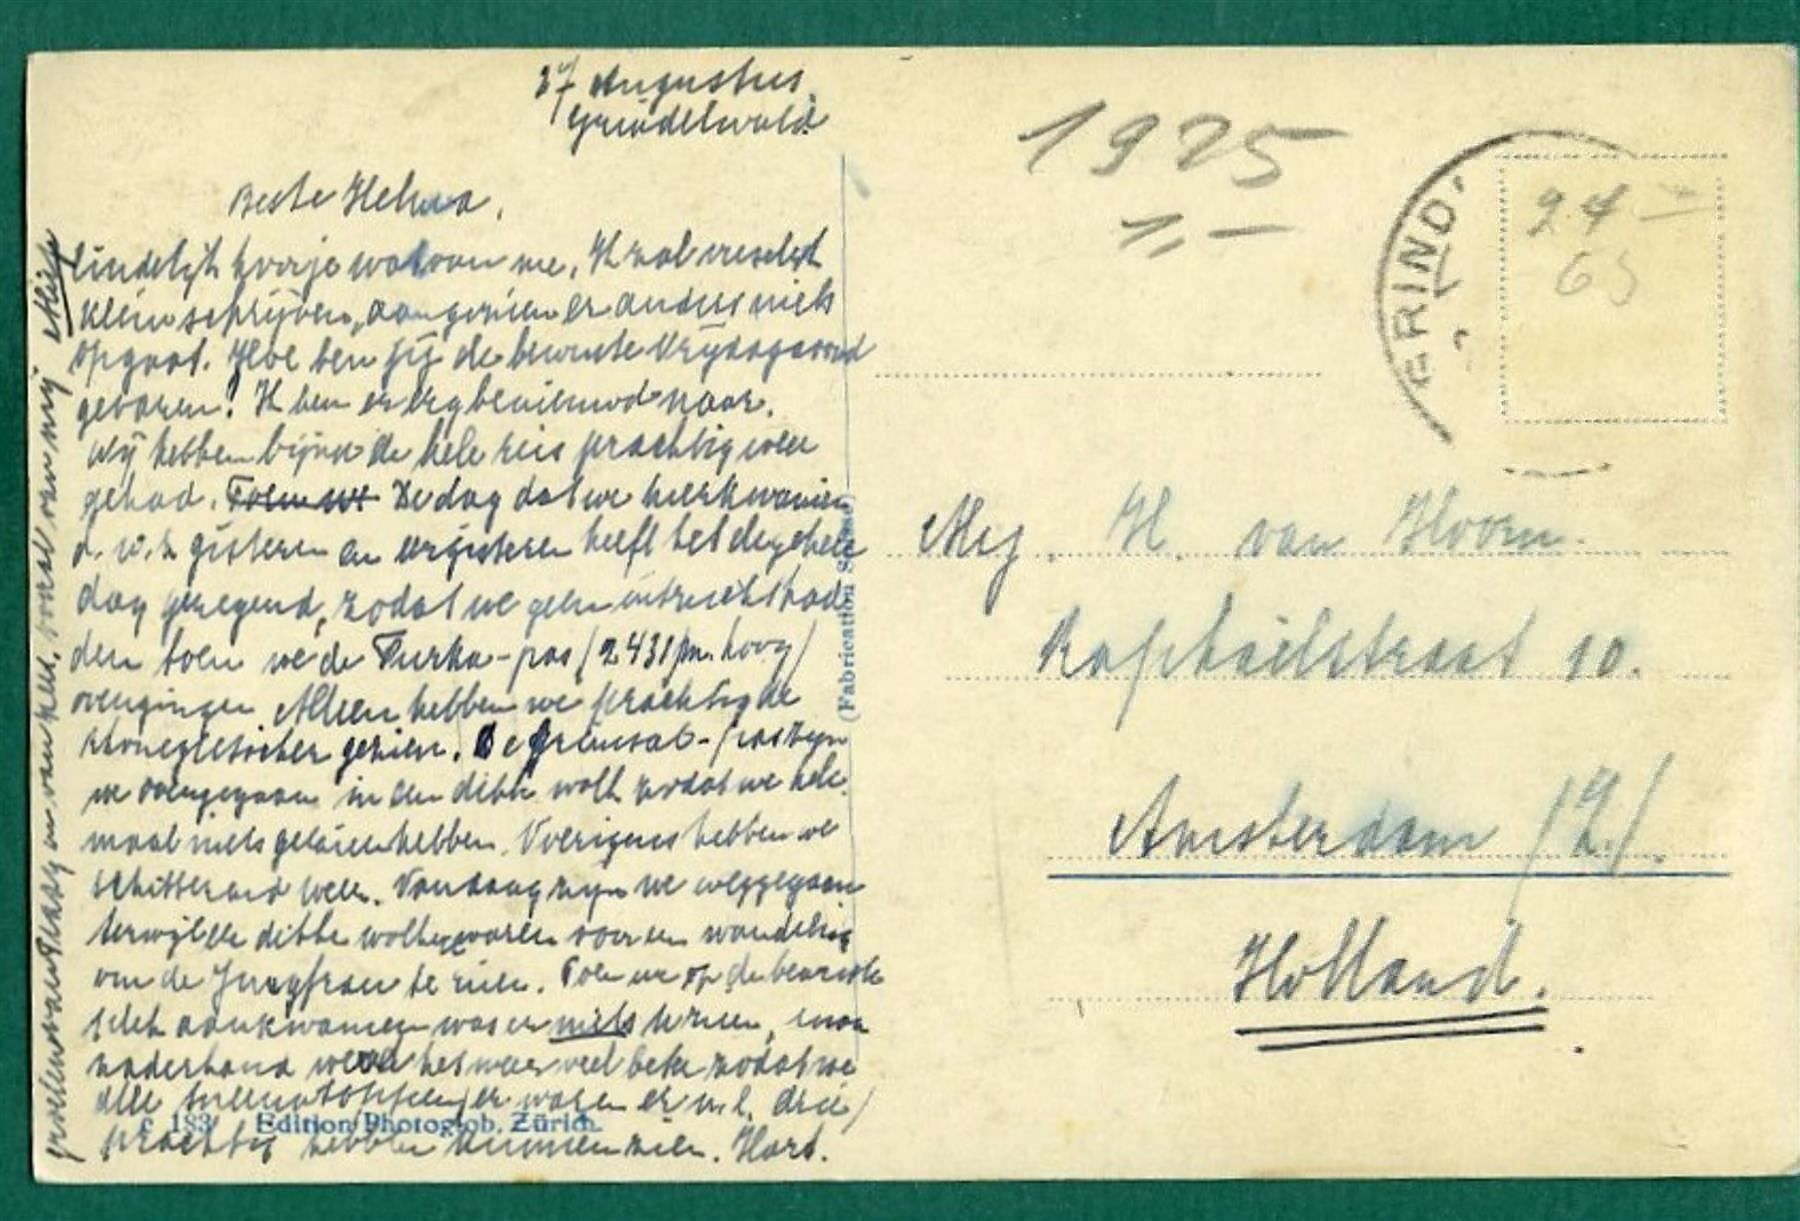 27 Augustus.
Grindelwald.
Beste Helma,
Eindelijk hoor je wat van me. Ik zal vreselijk
klein schrijven, aangezien er anders niets
opgaat. Hoe ben jij de bewuste Vrijdagavond
gevaren? Ik ben er erg benieuwd naar.
Wij hebben bijna de hele reis prachtig weer
gehad. Toen we De dag dat we hier kwamen
d.w.z. gisteren en eergisteren heeft het de gehele
dag geregend, zodat we geen uitzicht had
den toen we de Furka-pas (2431 m. hoog)
overgingen. Alleen hebben we prachtig de
Rhonegletscher gezien. De Grimsel-pas zijn
we overgegaan in een dikke wolk zodat we hele-
maal niets gezien hebben. Overigens hebben we
schitterend weer. Vandaag zijn we weggegaan
terwijl er dikke wolken waren voor een wandeling
om de Jungfrau te zien. Toen we op de
aankwamen was er niets te zien, maar
naderhand werd het weer veel beter zodat we
alle (er waren er n.l. drie)
prachtig hebben kunnen zien. Hart.
groeten van van hen, vooral van mij Miep
(Fabrication Suisse)
c 183 Edition Photoglob, Zürich.
1925
1,-
ERIND.
24
65
Mej. H. van Hoorn.
Raphaëlstraat 10.
Amsterdam (Z.).
Holland.